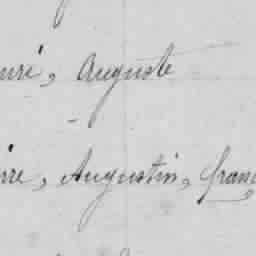 uré, Auguste
rre, Augustin, Franç